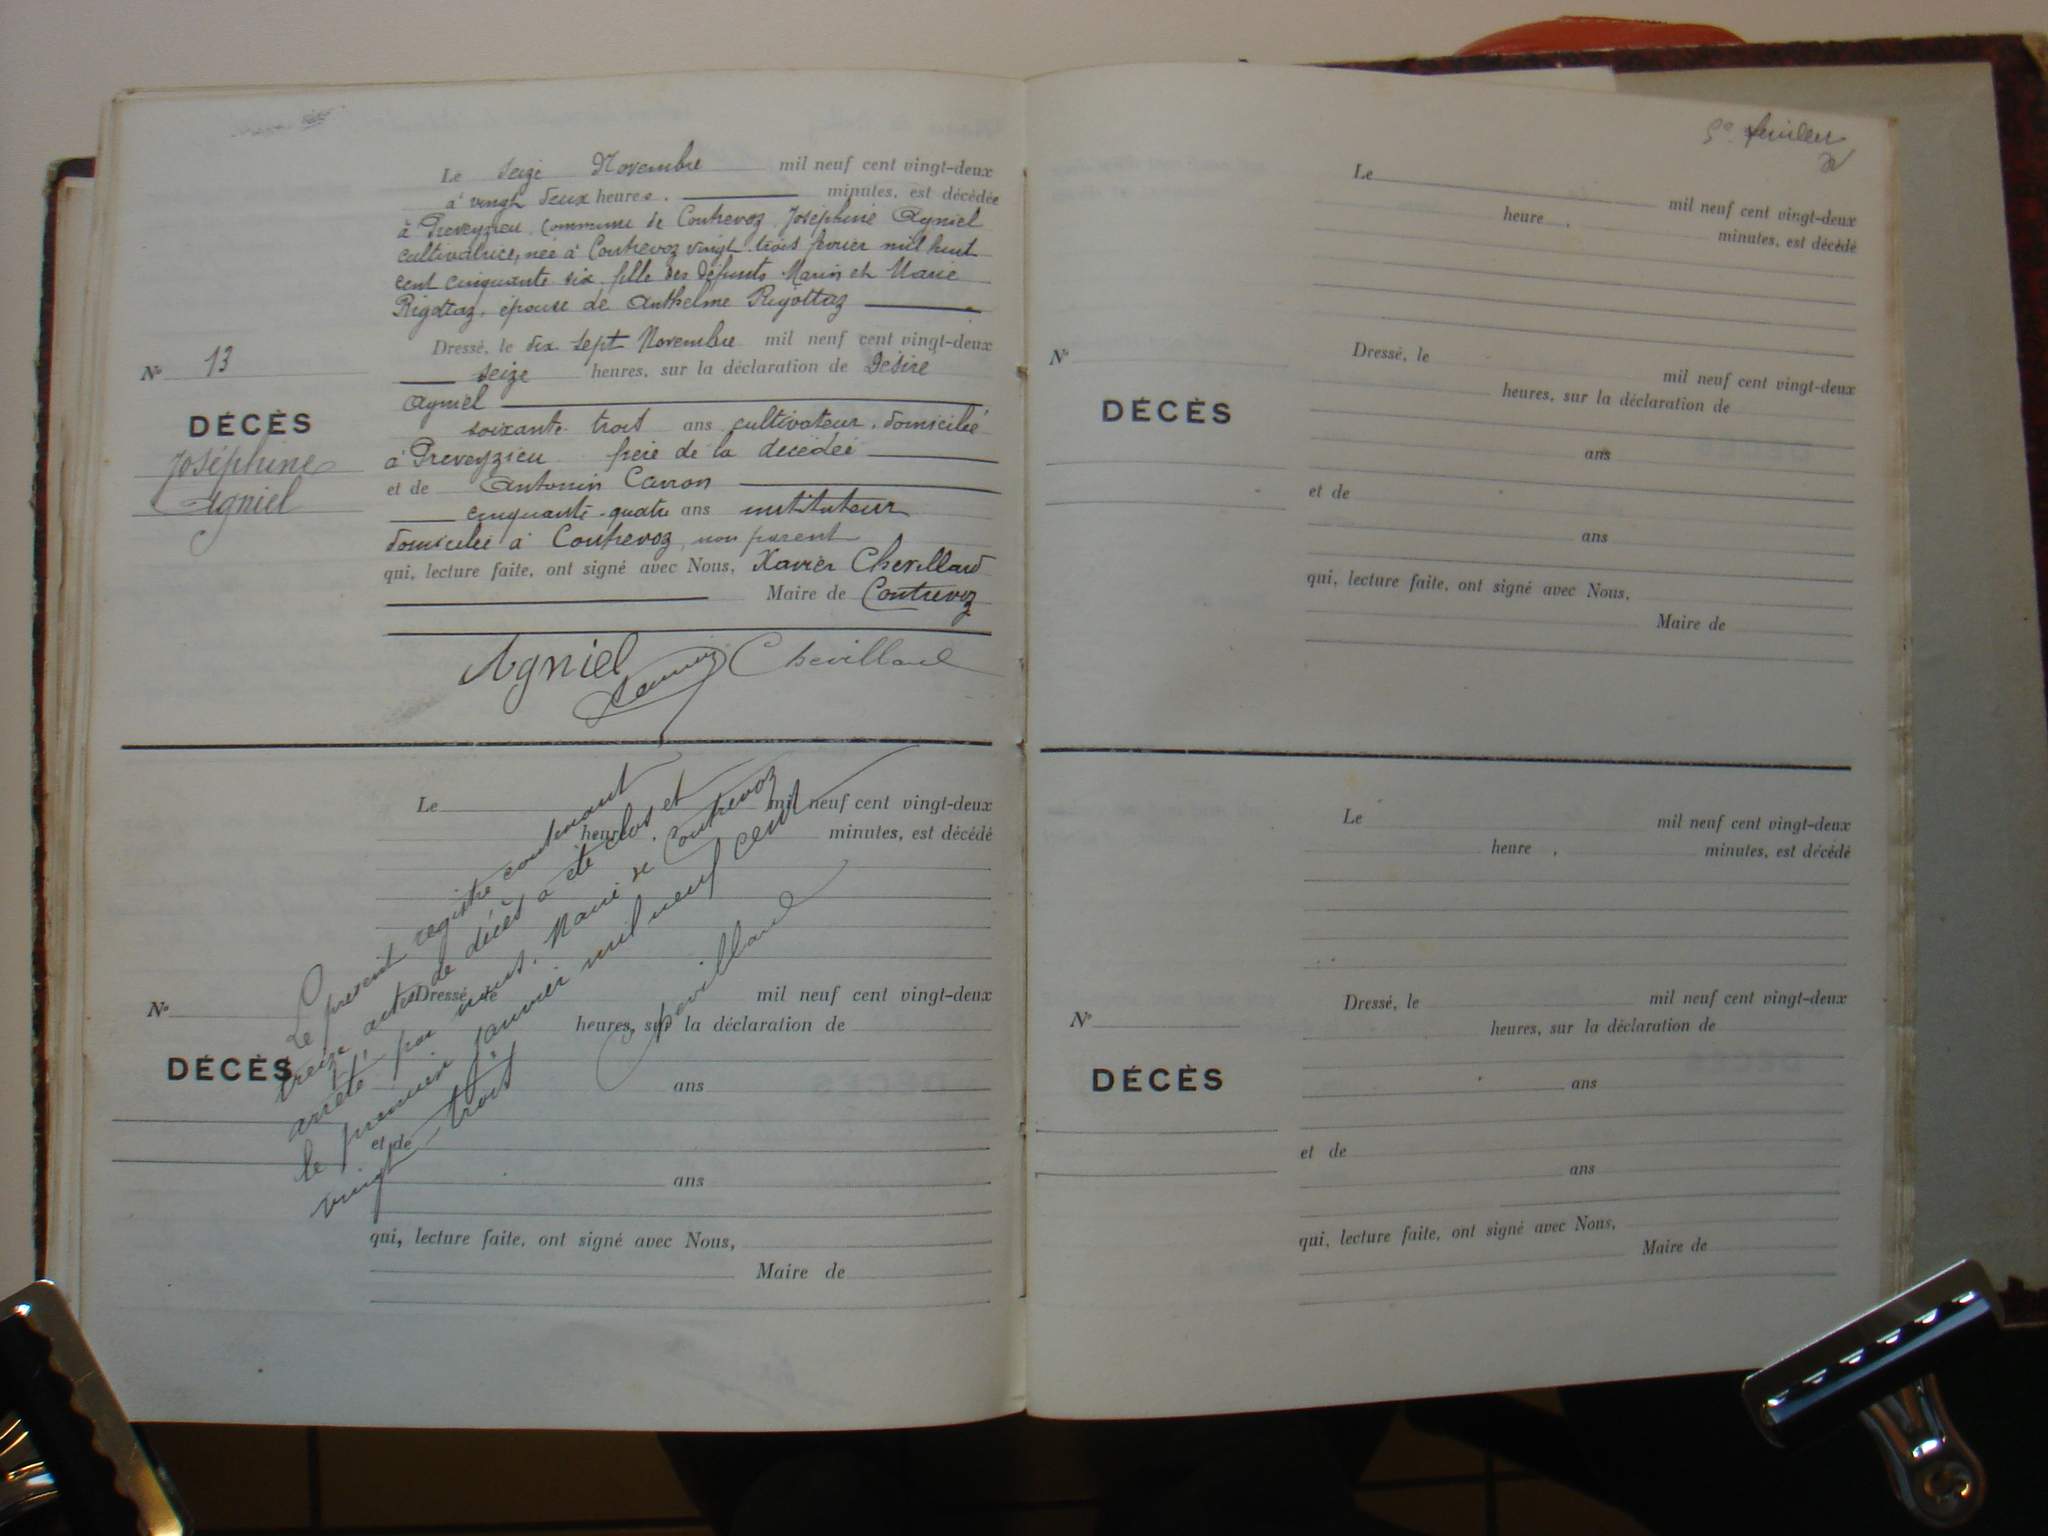 Le seize Novembre mil neuf cent vingt-deux
à vingt deux heures. minutes, est décédée
à Preveyzieu commune de Contrevoz Joséphine Agniel
cultivatrice, née à Contrevoz vingt-trois février mil huit
cent cinquante six, fille des défunts Marin et Marie
Rigottaz, épouse de Anthelme Rigottaz
Dressé, le dix sept Novembre mil neuf cent vingt-deux
seize heures, sur la déclaration de Désiré
Agniel
soixante trois ans cultivateur, domicilié
à Preveyzieu frère de la décédée
et de Antonin Carron
cinquante-quatre ans instituteur
domicilié à Contrevoz, non parent
qui, lecture faite, ont signé avec Nous, Xavier Chevillard
Maire de Contrevoz
Agniel Chevillard
N° 13
DÉCÈS
Joséphine
Agniel
Le mil neuf cent vingt-deux
heures minutes, est décédé
Dressé, le mil neuf cent vingt-deux
heures, sur la déclaration de
ans
et de
ans
qui, lecture faite, ont signé avec Nous,
Maire de
N°
DÉCÈS
Le présent registre contenant
treize actes de décès a été clos et
arrêté, par nous, Maire de Contrevoz
le premier janvier mil neuf cent
vingt-trois
Chevillard
Le mil neuf cent vingt-deux
heure , minutes, est décédé
Dressé, le mil neuf cent vingt-deux
heures, sur la déclaration de
ans
et de
ans
qui, lecture faite, ont signé avec Nous,
Maire de
N°
DÉCÈS
Le mil neuf cent vingt-deux
heure , minutes, est décédé
Dressé, le mil neuf cent vingt-deux
heures, sur la déclaration de
ans
et de
ans
qui, lecture faite, ont signé avec Nous,
Maire de
N°
DÉCÈS